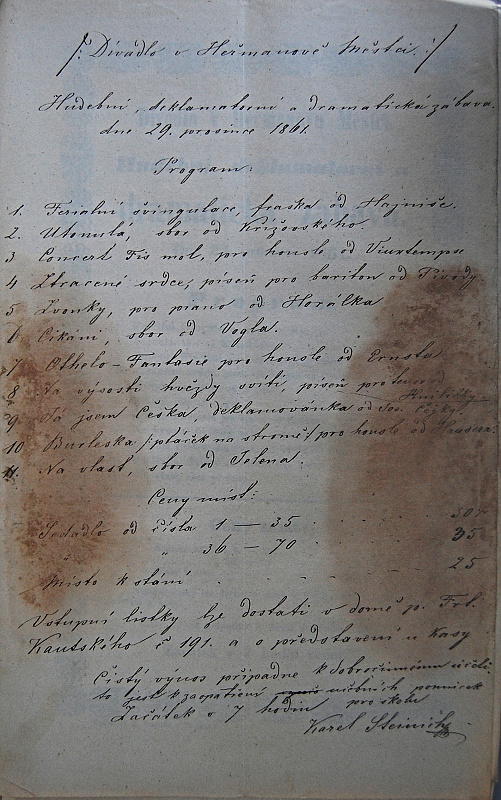 /: Divadlo v Heřmanově Městci. :/
Hudební, deklamatorní a dramatická zábava
dne 29. prosince 1861.
Program:
1. Ferialní švingulace, fraska od Hajniše.
2. Utonulá, sbor od Křížovského.
3 Concert Fis mol, pro housle od Vieurtempse
4 Ztracené srdce, píseň pro bariton od Pivody
5 Zvonky, pro piano od Horálka
6 Cikáni, sbor od Vogla.
7 Othelo-Fantasie pro housle od Ernsta
8 Na výsosti hvězdy svítí, píseň pro tenor
9 Já jsem Češka, deklamovánka od Jos. Čejky.
10 Burleska /: ptáček na stromě :/ pro housle od Hausera.
11. Na vlast, sbor od Jelena.
Ceny míst:
Sedadlo od čísla 1 — 35 . . . 50 kr
" " 36 — 70 . . . 35
Místo k stání . . . 25
Vstupní lístky lze dostati v domě p. Frt.
Kautského č 191. a o představení u kasy
Čistý výnos připadne k dobročinnému účeli
to jest k zaopatření učebních pomůcek
pro školu
Začátek o 7 hodin
Karel Steinich